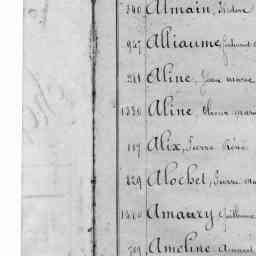 340 Almain, Isidore
947 Alliaume,
241 Aline, Jean marie
1330 Aline,
117 Alix, Pierre Réné
829 Alochet, Pierre
1410 Amaury Guillaume
709 Ameline Amand